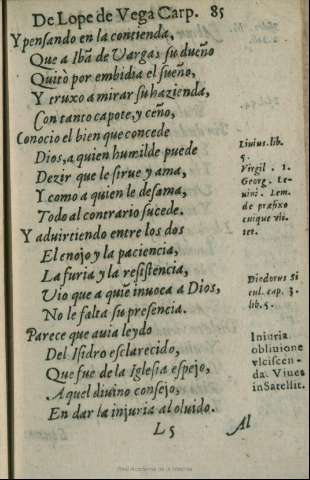 De Lope de Vega Carp. 85
Y pensando en la contienda,
Que a Ibã de Vargas su dueño
Quitò por embidia el sueño,
Y truxo a mirar su hazienda,
Con tanto capote, y ceño,
Conocio el bien que concede
Dios, a quien humilde puede
Dezir que le sirue y ama,
Y como a quien le desama,
Todo al contrario sucede.
Y aduirtiendo entre los dos
El enojo y la paciencia,
La furia y la resistencia,
Vio que a quiẽ inuoca a Dios,
No le falta su presencia.
Parece que auia leydo
Del Isidro esclarecido,
Que fue de la Iglesia espejo,
Aquel diuino consejo,
En dar la injuria al oluido.
L5 Al
Liuius. lib.
5.
Virgil. 1.
Georg. Le-
uini. Lem.
de præfixo
cuique vit.
ter.
Diodorus Si
cul. cap. 3.
lib. 5.
Iniuria
obliuione
vlciscen-
da. Viues
in Satellit.
Real Academia de la Historia